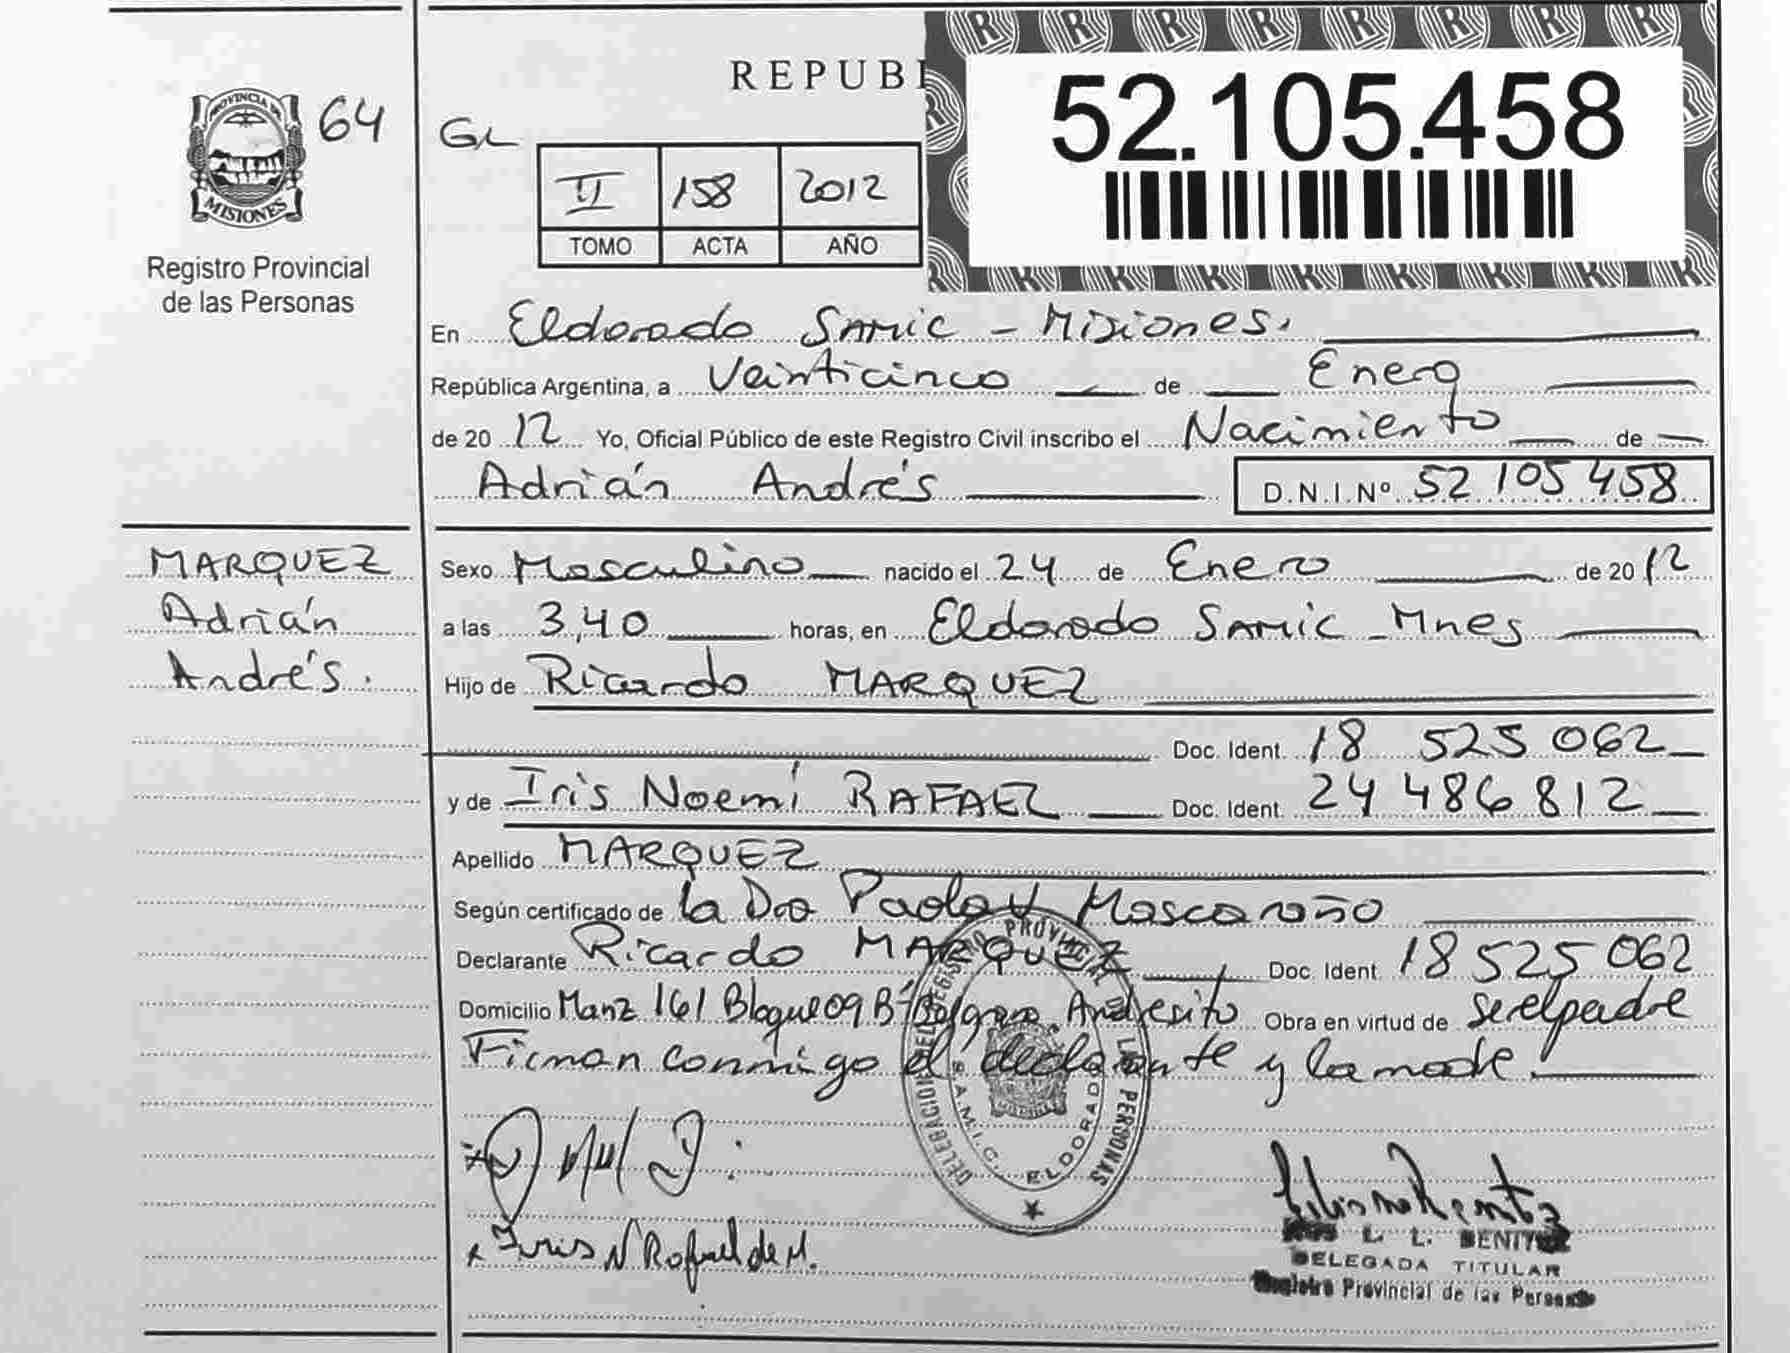 PROVINCIA DE
MISIONES
64
Registro Provincial
de las Personas
REPUBI
GL
52.105.458
II 158 2012
TOMO ACTA AÑO
En Eldorado SAMIC - Misiones.
República Argentina, a Veinticinco de Enero
de 20 12 Yo, Oficial Público de este Registro Civil inscribo el Nacimiento de
Adrián Andrés D.N.I.Nº 52 105 458
MARQUEZ
Adrián
Andrés.
Sexo Masculino nacido el 24 de Enero de 20 12
a las 3,40 horas, en Eldorado SAMIC - Mnes
Hijo de Ricardo MARQUEZ
Doc. Ident. 18 525 062
y de Iris Noemí RAFAEL Doc. Ident. 24 486 812
Apellido MARQUEZ
Según certificado de la Dra Paola Y Moscaroño
Declarante Ricardo MARQUEZ Doc. Ident. 18 525 062
Domicilio Manz 161 Bloque 09 Bº Belgrano Andresito Obra en virtud de ser el padre
Firman conmigo el declarante y la madre.
DELEGACION DEL REGISTRO PROVINCIAL DE LAS PERSONAS
S.A.M.I.C. ELDORADO
Iris N Rafael de M.
L. L. BENITEZ
DELEGADA TITULAR
Registro Provincial de las Personas